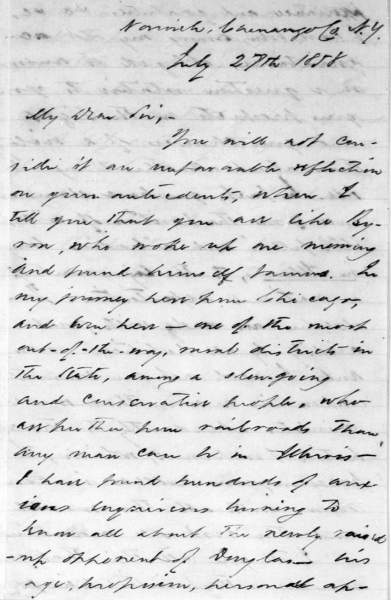 Norwich, Chenango Co N.Y.
July 27th 1858
My Dear Sir,-
You will not con-
sider it an unfavorable reflection
on your antecedents, when I
tell you that you are like By-
ron, who woke up one morning
and found himself famous. In
my journey here from Chicago,
and even here - one of the most
out-of-the-way, rural districts in
the State, among a slow going
and conservative people, who
are further from railroads than
any man can be in Illinois -
I have found hundreds of anx-
ious enquirers burning to
know all about the newly raised
-up opponent of Douglas - his
age, profession, personal ap-